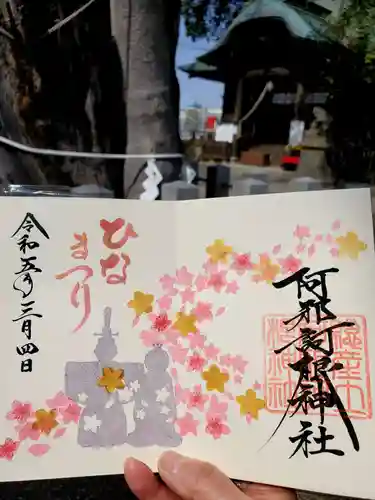 阿邪訶根神社
ひな
まつり
令和五年三月四日